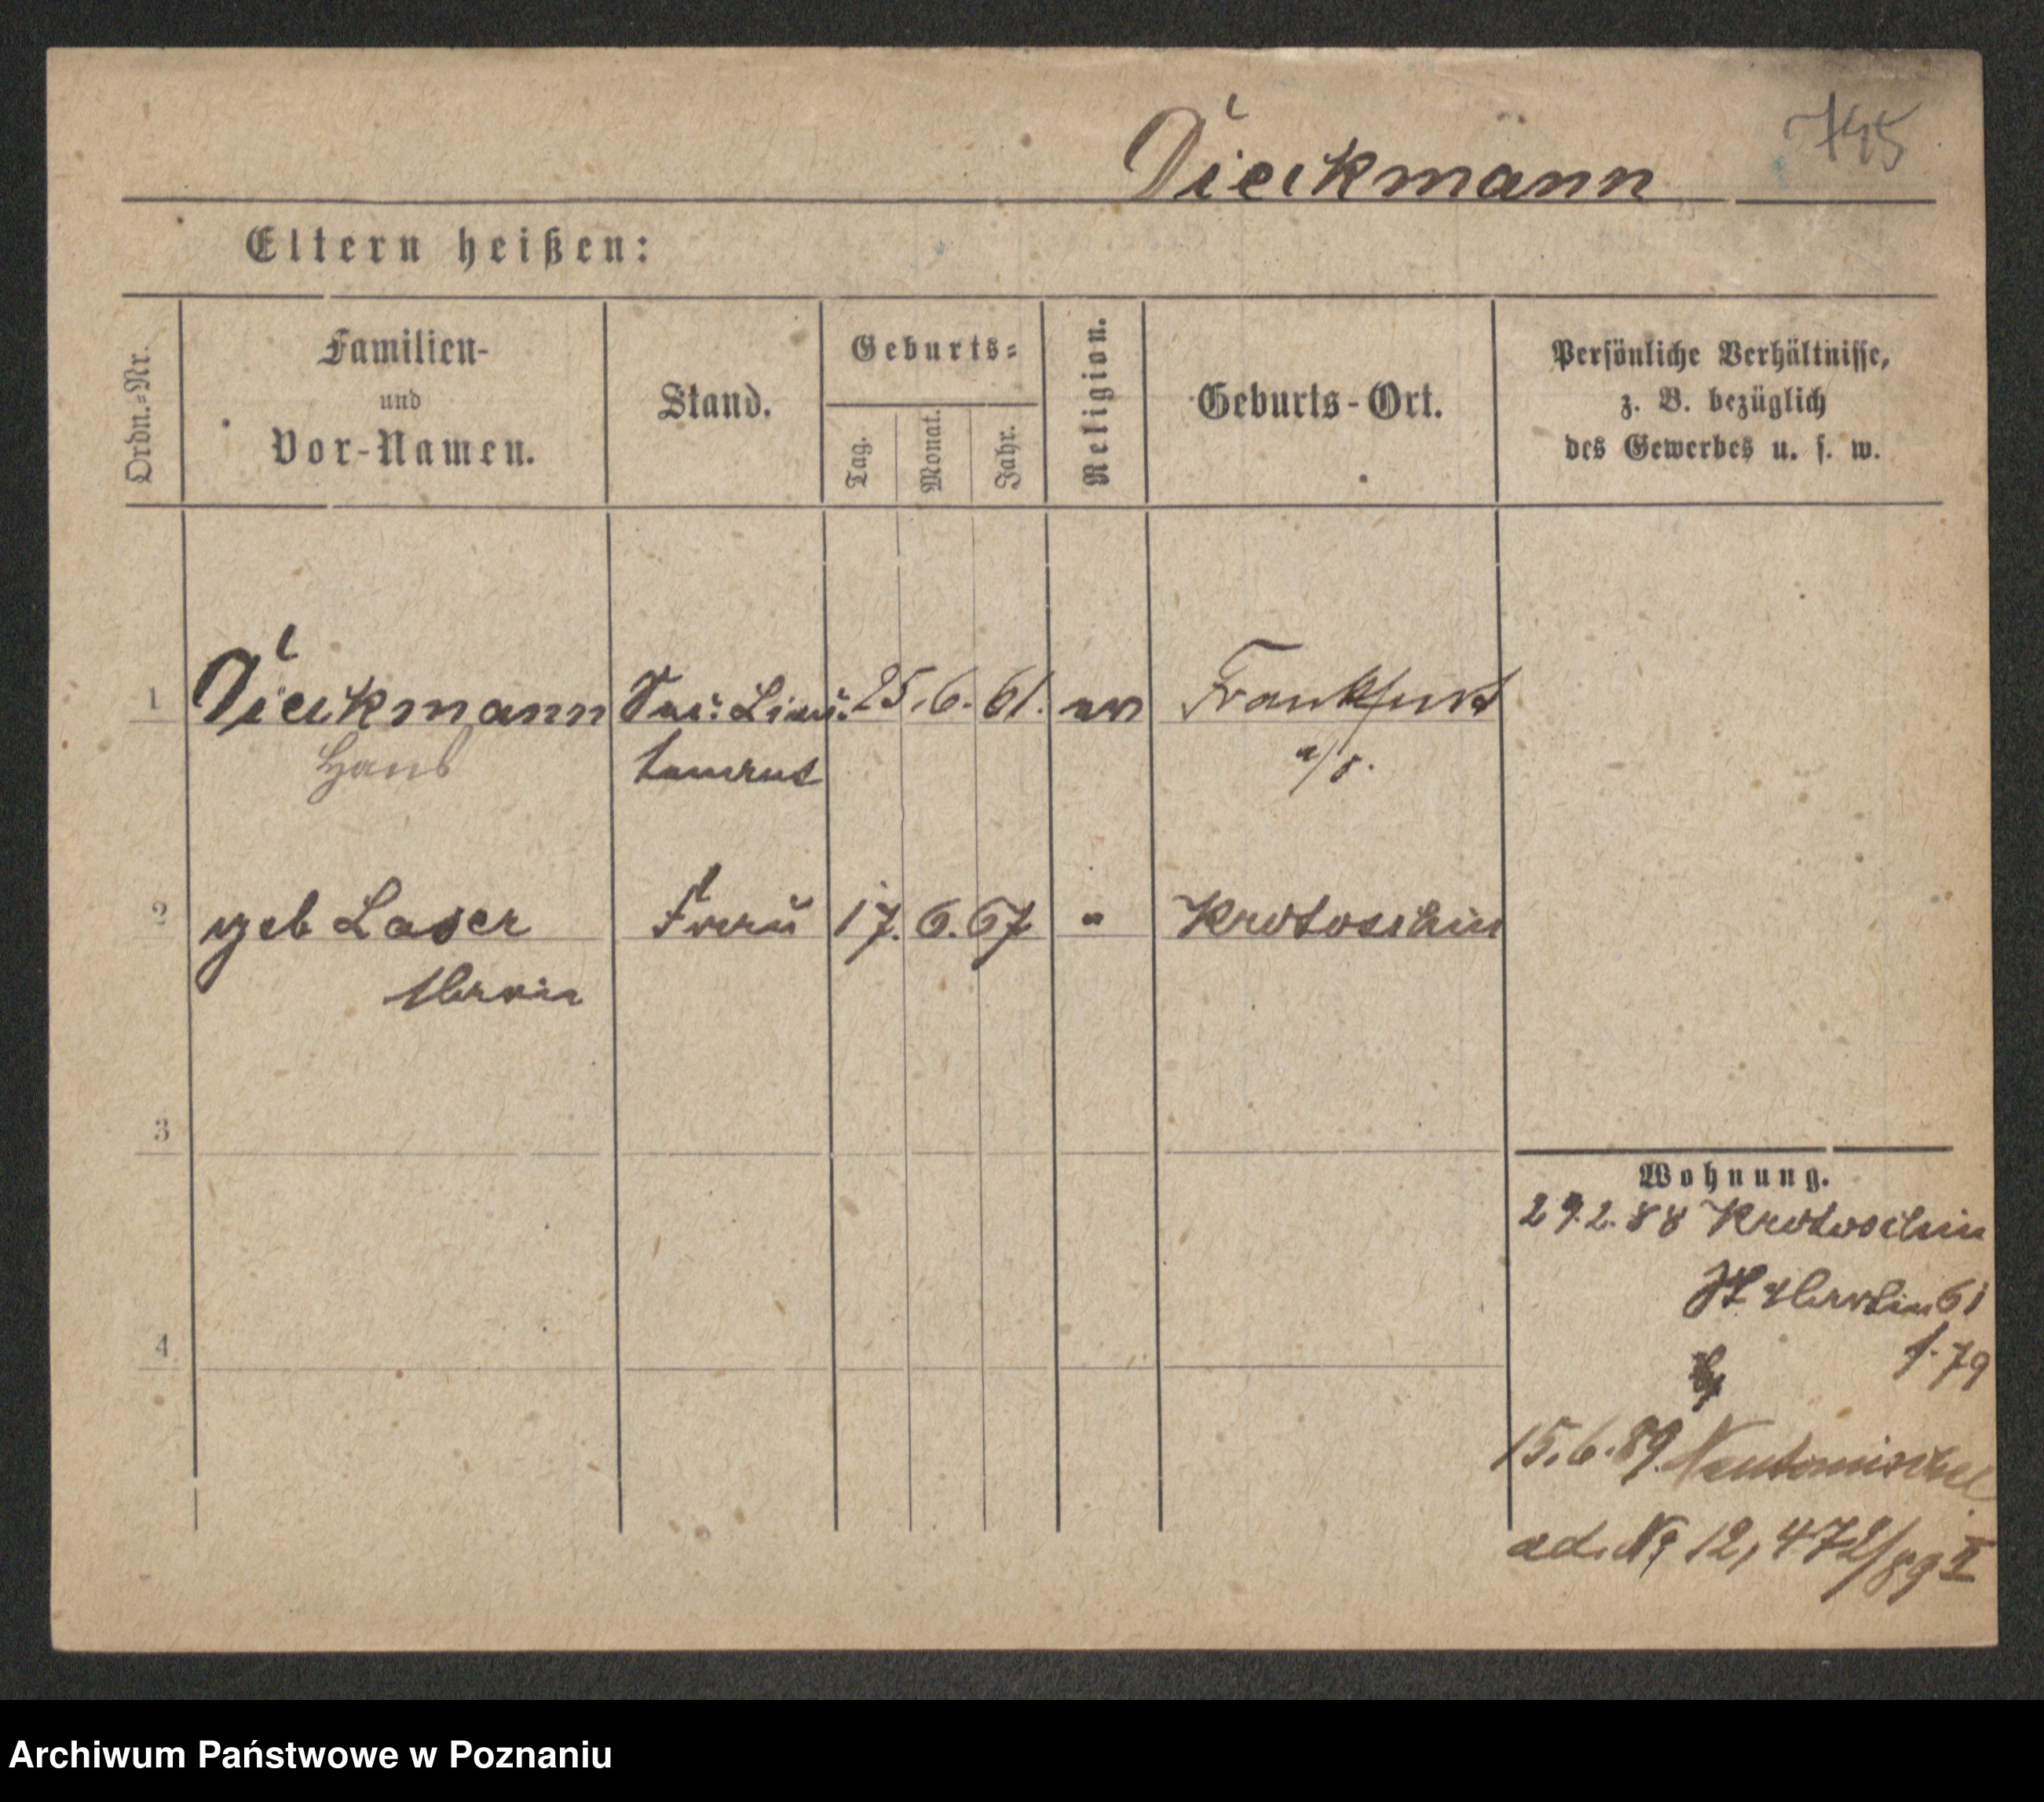 Dieckmann 745
Eltern heißen:
Ordn.-Nr.
Familien-
und
Vor-Namen.
Stand.
Geburts-
Tag.
Monat.
Jahr.
Religion.
Geburts-Ort.
Persönliche Verhältnisse,
z. B. bezüglich
des Gewerbes u. s. w.
1 Dieckmann 25. 6. 61. ev Frankfurt
Hans a/
2 geb Laser Frau 17. 6. 67 " Krotoschin
3
4
Wohnung.
29.2.88 Krotoschin
St. Martin 61
1.79
15.6.89. Neutomischel
ad. No 12,472/89 II
Archiwum Państwowe w Poznaniu